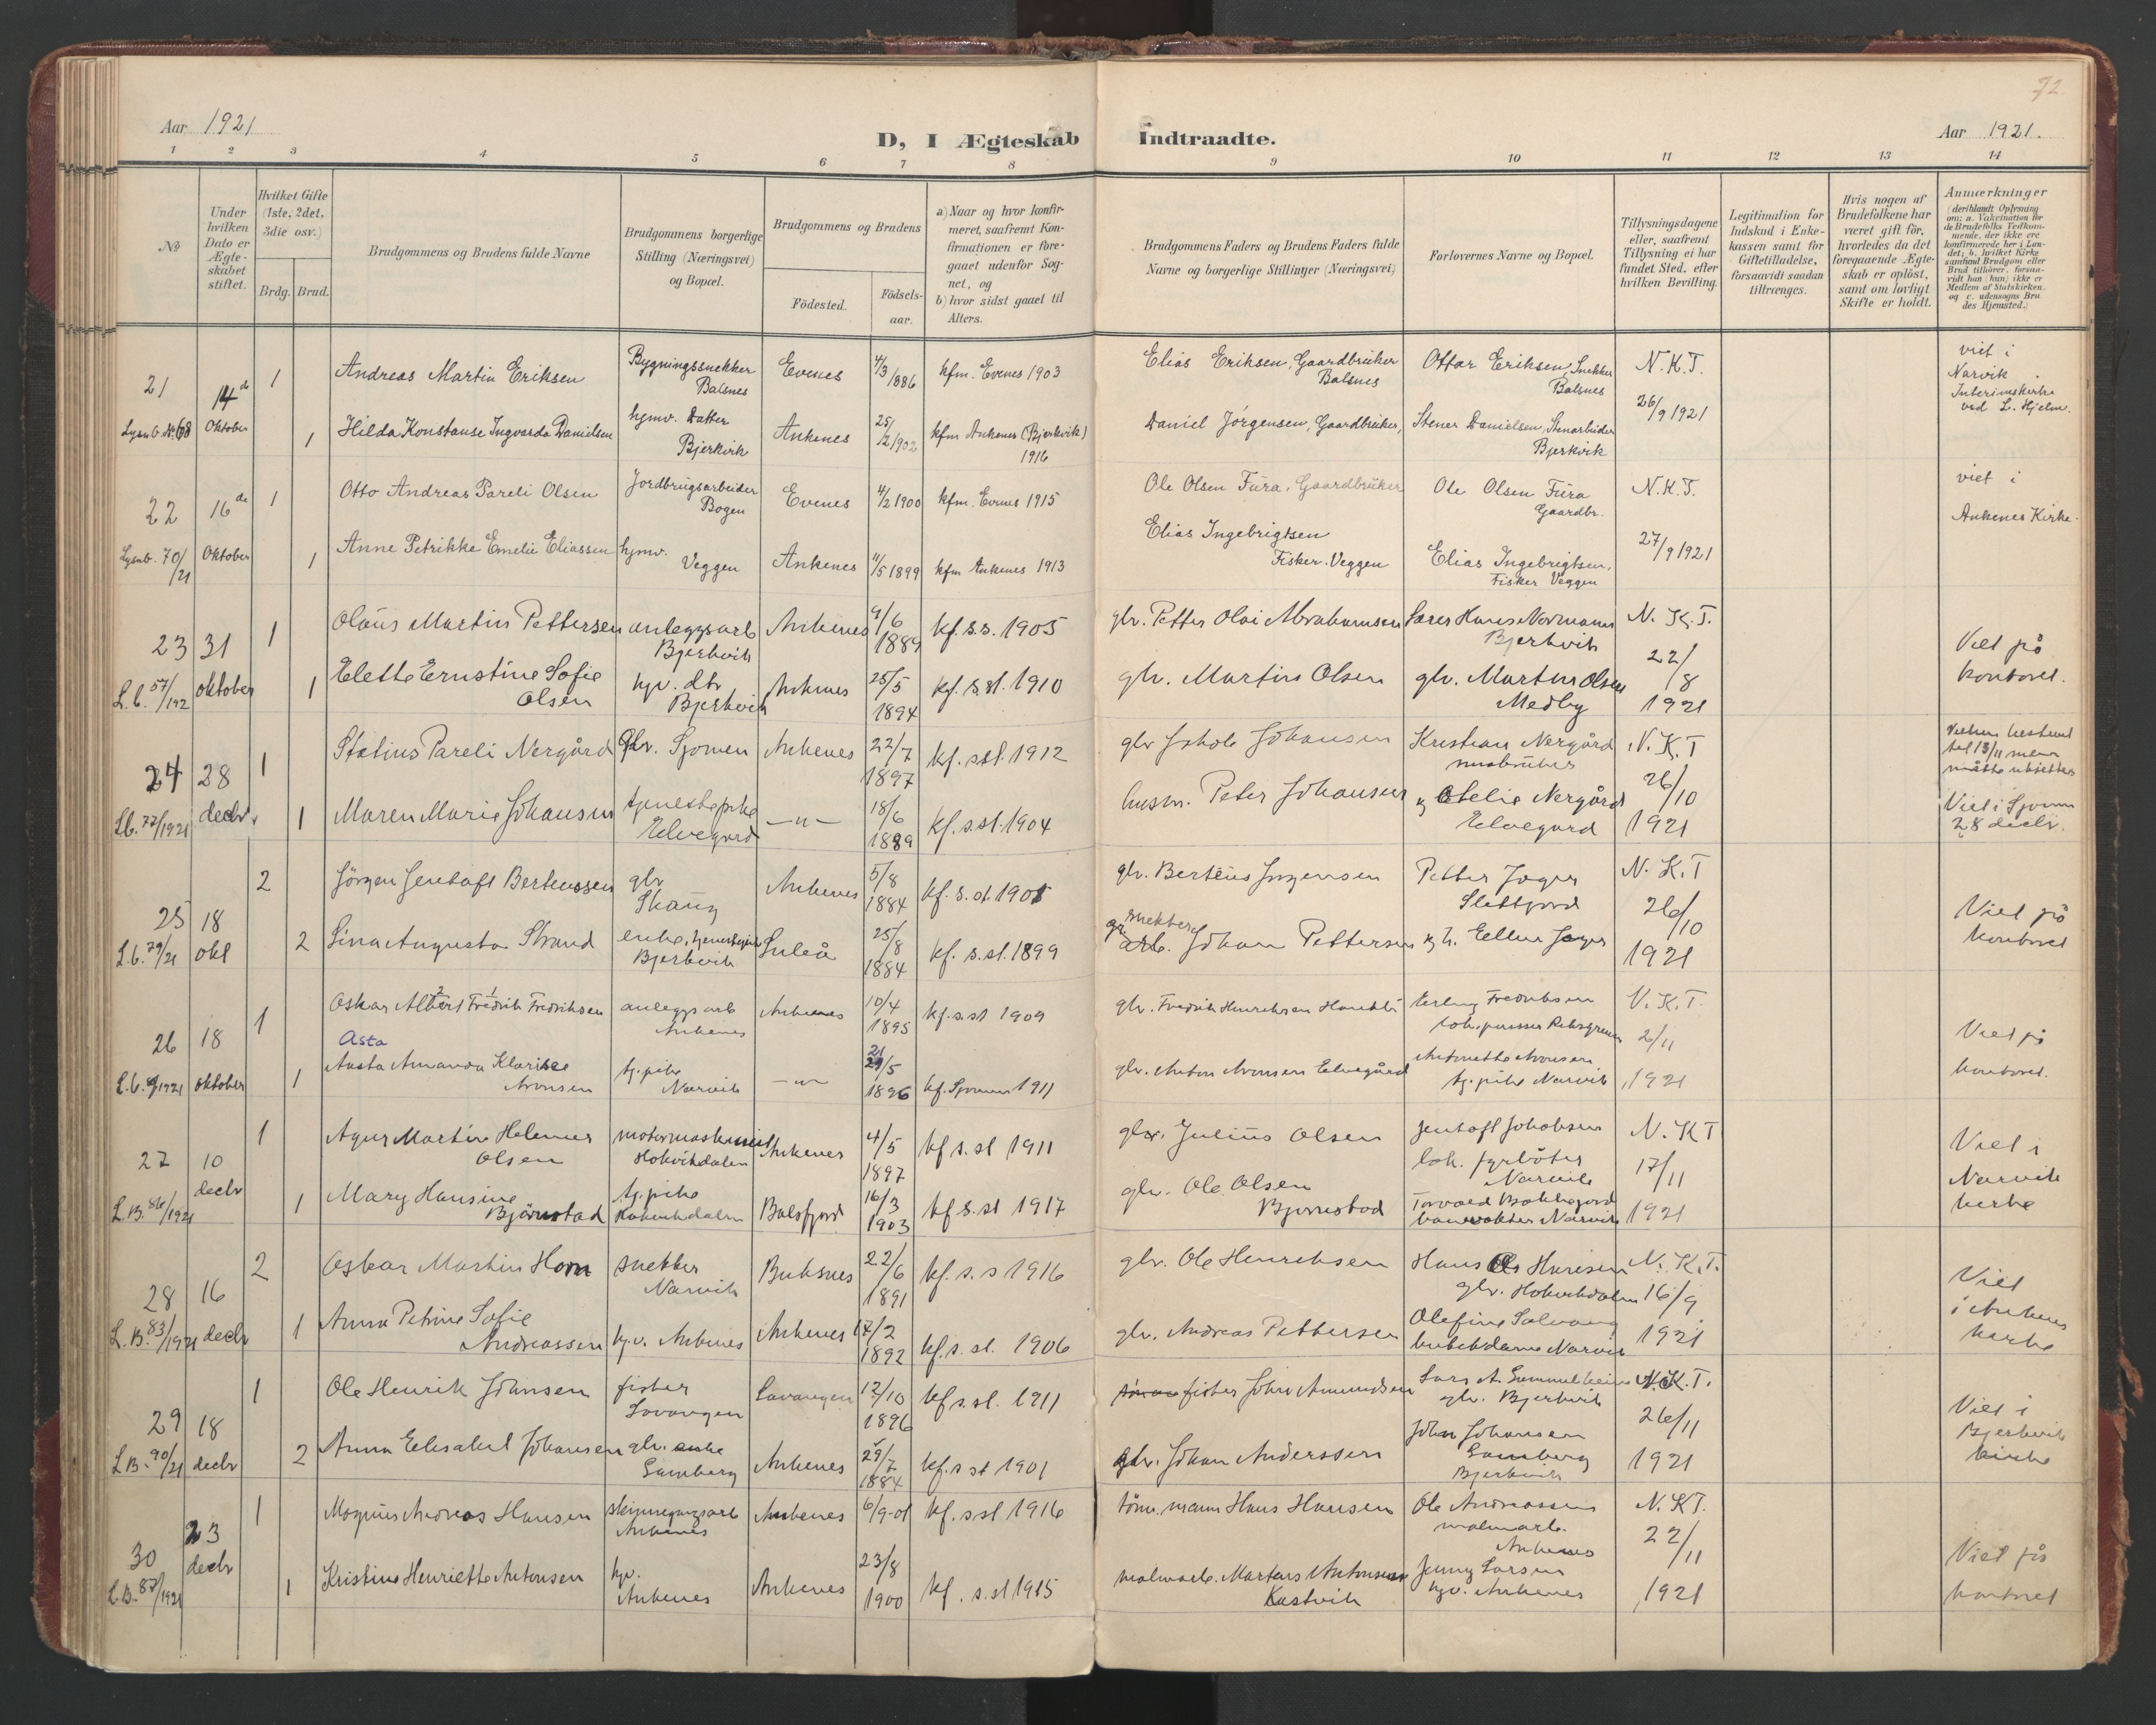 72.
Aar 1921
D, I Ægteskab Indtraadte.
Aar 1921.
1 2 3 4 5 6 7 8 9 10 11 12 13 14
No
Under hvilken Dato er Ægteskabet stiftet.
Hvilket Gifte (1ste, 2det, 3die osv.)
Brdg. Brud.
Brudgommens og Brudens fulde Navne
Brudgommens borgerlige Stilling (Næringsvei) og Bopæl.
Brudgommens og Brudens
Födested.
Födsels-aar.
a) Naar og hvor konfirmeret, saafremt Konfirmationen er foregaaet udenfor Sognet, og
b) hvor sidst gaaet til Alters.
Brudgommens Faders og Brudens Faders fulde Navne og borgerlige Stillinger (Næringsvei)
Forlovernes Navne og Bopæl.
Tillysningsdagene eller, saafremt Tillysning ei har fundet Sted, efter hvilken Bevilling.
Legitimation for Indskud i Enkekassen samt for Giftetilladelse, forsaavidt saadan tiltrænges.
Hvis nogen af Brudefolkene har været gift för, hvorledes da det foregaaende Ægteskab er oplöst, samt om lovligt Skifte er holdt.
Anmærkninger
(deriblandt Oplysning om: a. Vakcination for de Brudefolks Vedkommende, der ikke ere konfirmerede her i Landet; b. hvilket Kirkesamfund Brudgom eller Brud tilhörer, forsaavidt han (hun) ikke er Medlem af Statskirken. og c. udensogns Brudes Hjemsted.)
21 14de 1 Andreas Martin Eriksen Bygningssnekker Balsnes Evenes 4/3 1886 kfm. Evenes 1903 Elias Eriksen, Gaardbruker Balsnes Ottar Eriksen, Snekker Balsnes N.K.T. viet i Narvik Interimskirke ved L. Hjelm.
Lysnb. Nr. 68 Oktober 1 Hilda Konstanse Ingvarda Danielsen hjmv. Datter Bjerkvik Ankenes 25/12 1902 kfm Ankenes (Bjerkvik) 1916 Daniel Jörgensen, Gaardbruker, Stener Danielsen, Stenarbeider Bjerkvik 26/9 1921
22 16de 1 Otto Andreas Pareli Olsen Jordbrugsarbeider Bogen Evenes 4/2 1900 kfm. Evenes 1915 Ole Olsen Fura, Gaardbruker Ole Olsen Fura Gaardbr. N.K.T. viet i Ankenes Kirke.
Lysnb. 70/21 Oktober 1 Anne Petrikke Emelie Eliassen hjmv. Veggen Ankenes 11/5 1899 kfm Ankenes 1913 Elias Ingebrigtsen Fisker. Veggen Elias Ingebrigtsen, Fisker Veggen 27/9 1921
23 31 1 Olaus Martin Pettersen anleggsarb Bjerkvik Ankenes 9/6 1889 kf. s.s. 1905 gbr. Petter Olai Abrahamsen Hans Normann Bjerkvik N.K.T. Viet på kontoret.
L.b. 57/192 oktober 1 Elette Ernstine Sofie Olsen hjv. dtr Bjerkvik Ankenes 25/5 1894 kf. s.st. 1910 gbr. Martin Olsen gbr. Martin Olsen Medby 22/8 1921
24 28 1 Statius Pareli Nergård Gbr. Sjomen Ankenes 22/7 1897 kf. s.st. 1912 gbr Jakob Johansen Kristian Nergård småbruker N.K.T til 13/11 men måtte utsettes
Lb. 77/1921 decbr. 1 Maren Marie Johansen tjenestepike Elvegard —"— 18/6 1889 kf. s.st. 1904 husm. Peter Johansen Nergård Elvegard 26/10 1921 Viet i Sjomen 28 decbr.
25 18 2 Jörgen Jentoft Berteussen gbr Skaug Ankenes 5/8 1884 kf. s. st. 1901 gbr. Berteus Jörgensen Petter Jæger Slettjord N.K.T Viet på kontoret
L.b. 79/21 okt 2 Lina Augusta Strand enke, Bjerkvik Luleå 25/8 1884 kf. s.st. 1899 arb. Johan Pettersen Ellen Jæger 26/10 1921
26 18 1 Oskar Albert Fredrik Fredriksen anleggsarb Ankenes Ankenes 10/4 1895 kf. s.st 1909 gbr. Fredrik Henriksen Erling Fredriksen lok.pusser N.K.T. Viet på kontoret.
Asta
L.b. 1921 oktober 1 Aasta Amanda Klarisse Aronsen tj.pike Narvik —"— 21/5 1896 kf. Sjomen 1911 gbr. Anton Aronsen Elvegård Antonette Aronsen tj. pike Narvik 2/11 1921
27 10 decbr 1 Martin Helmer Olsen motormaskinist Håkvikdalen Ankenes 4/5 1897 kf s.st 1911 gbr. Julius Olsen Jentoft Jakobsen lok. fyrböter Narvik N.K.T Viet i Narvik kirke
L.B. 86/1921 1 Mary Hansine Björnstad tj.pike Håkvikdalen Balsfjord 16/3 1903 kf s.st 1917 gbr. Ole Olsen Bjørnstad Torvald banevokter Narvik 17/11 1921
28 16 2 Oskar Martin Horn snekker Narvik Buksnes 22/6 1891 kf. s.s 1916 gbr. Ole Henriksen Hans Ole Hansen gbr. Håkvikdalen N.K.T. Viet i Ankenes kirke
L.B. 83/1921 decbr 1 Anna Petrine Sofie Andreassen hjv. Ankenes Ankenes 17/2 1892 kf. s. st. 1906 gbr. Andreas Pettersen Olefine butikdame Narvik 16/9 1921
29 18 1 Ole Henrik Johnsen fisker Lavangen Lavangen 12/10 1896 kf s.st. 1911 fisker John Amundsen Lars A. gbr. Bjerkvik N.K.T. Viet i Bjerkvik kirke
L.B. 90/21 decbr 2 Anna Elisabet Johansen gbr. enke Ankenes 29/7 1884 kf. s st 1901 gbr. Johan Anderssen John Johansen Bjerkvik 26/11 1921
30 23 decbr 1 Magnus Andreas Hansen Ankenes Ankenes 6/9-01 kf. s.st 1916 tömm. mann Hans Hansen Ole Andreassen malmarb. Ankenes N.K.T. Viet på kontoret
L.B. 87/1921 1 Kristine Henriette Antonsen hjv. Ankenes Ankenes 23/8 1900 kf. s.st 1915 malmarb. Martens Antonsen Kastvik Jenny Larsen hjv. Ankenes 22/11 1921